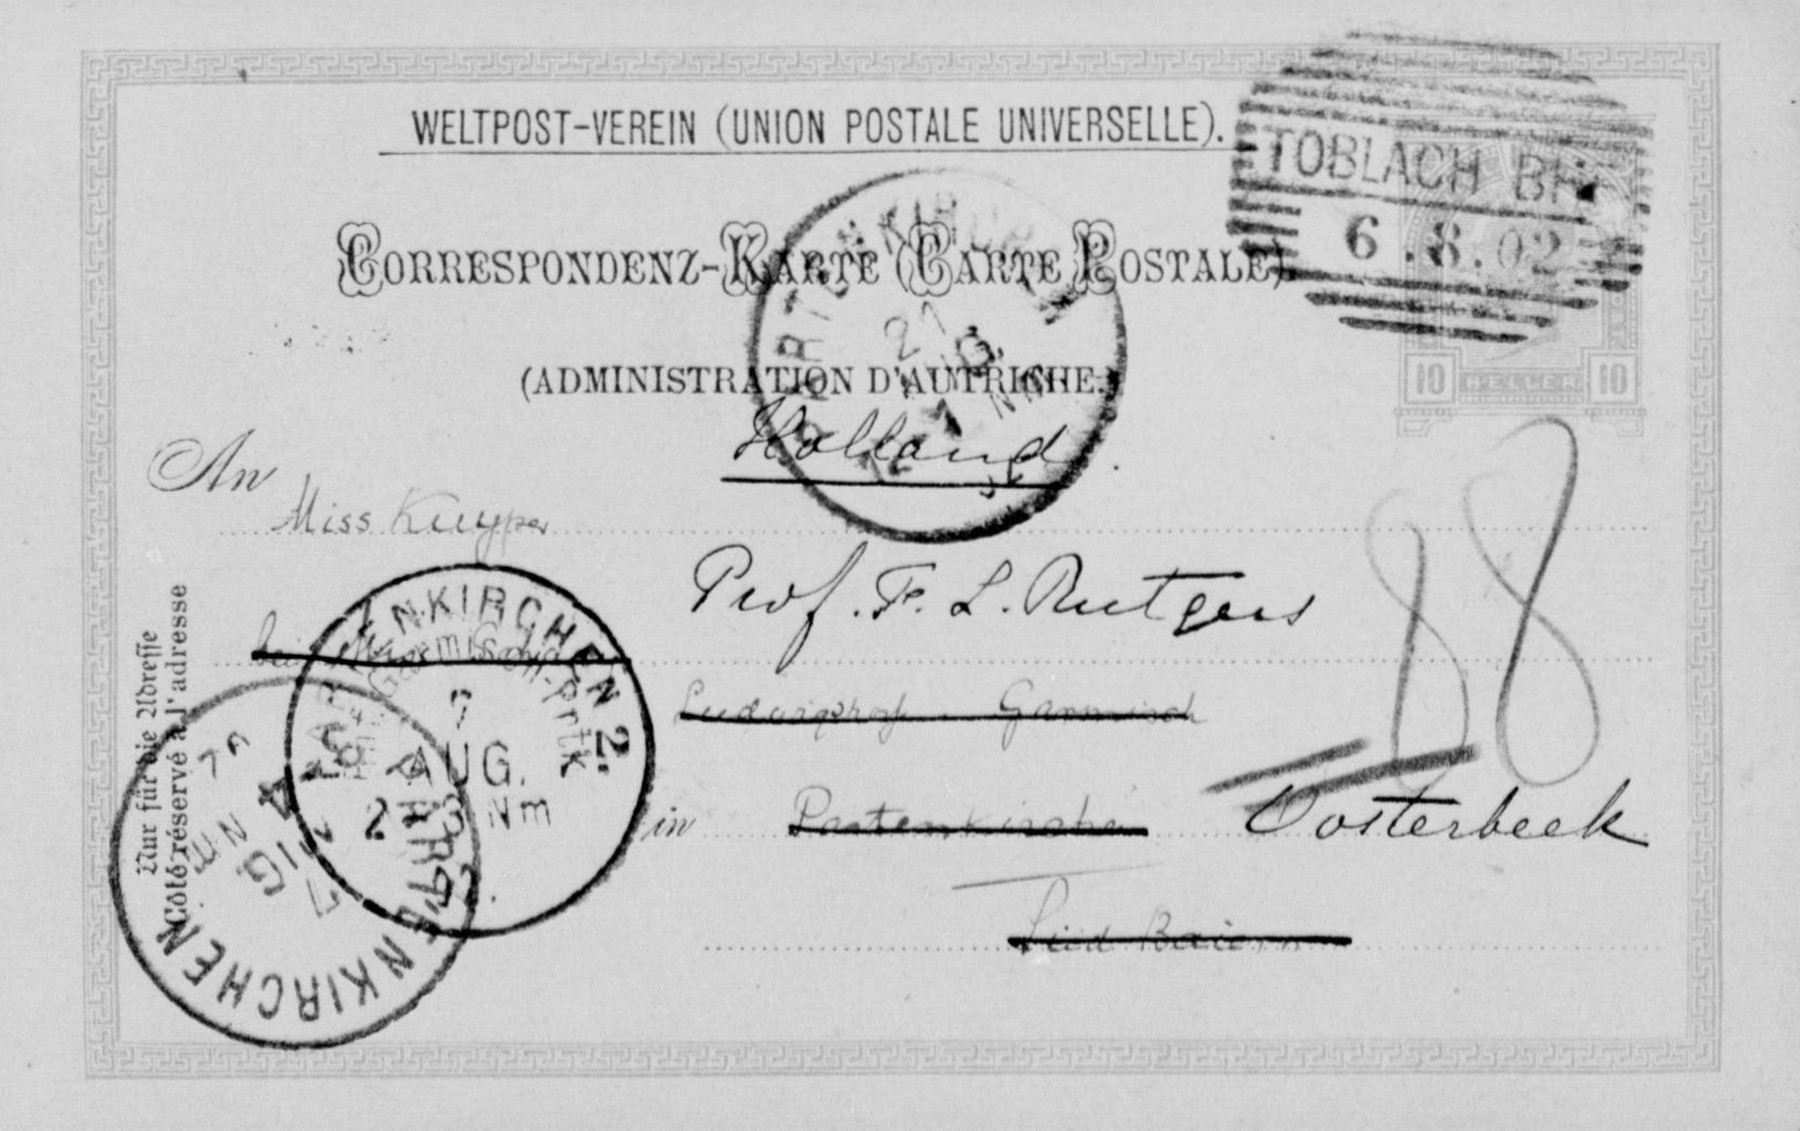 WELTPOST-VEREIN (UNION POSTALE UNIVERSELLE).
TOBLACH
6.8.02
CORRESPONDENZ-KARTE (CARTE POSTALE).
PARTENKIRCHEN
21
AUG.
(ADMINISTRATION D'AUTRICHE.)
10 HELLER 10
Holland
An
Miss Kuyper
88
Prof. F. L. Rutgers
PARTENKIRCHEN 2.
Garmisch-Prtk
7
AUG.
Nm
Ludwigshof. Garmisch
in Partenkirchen Oosterbeek
Süd Baiern
Nur für die Adresse
Côté réservé à l'adresse
PARTENKIRCHEN